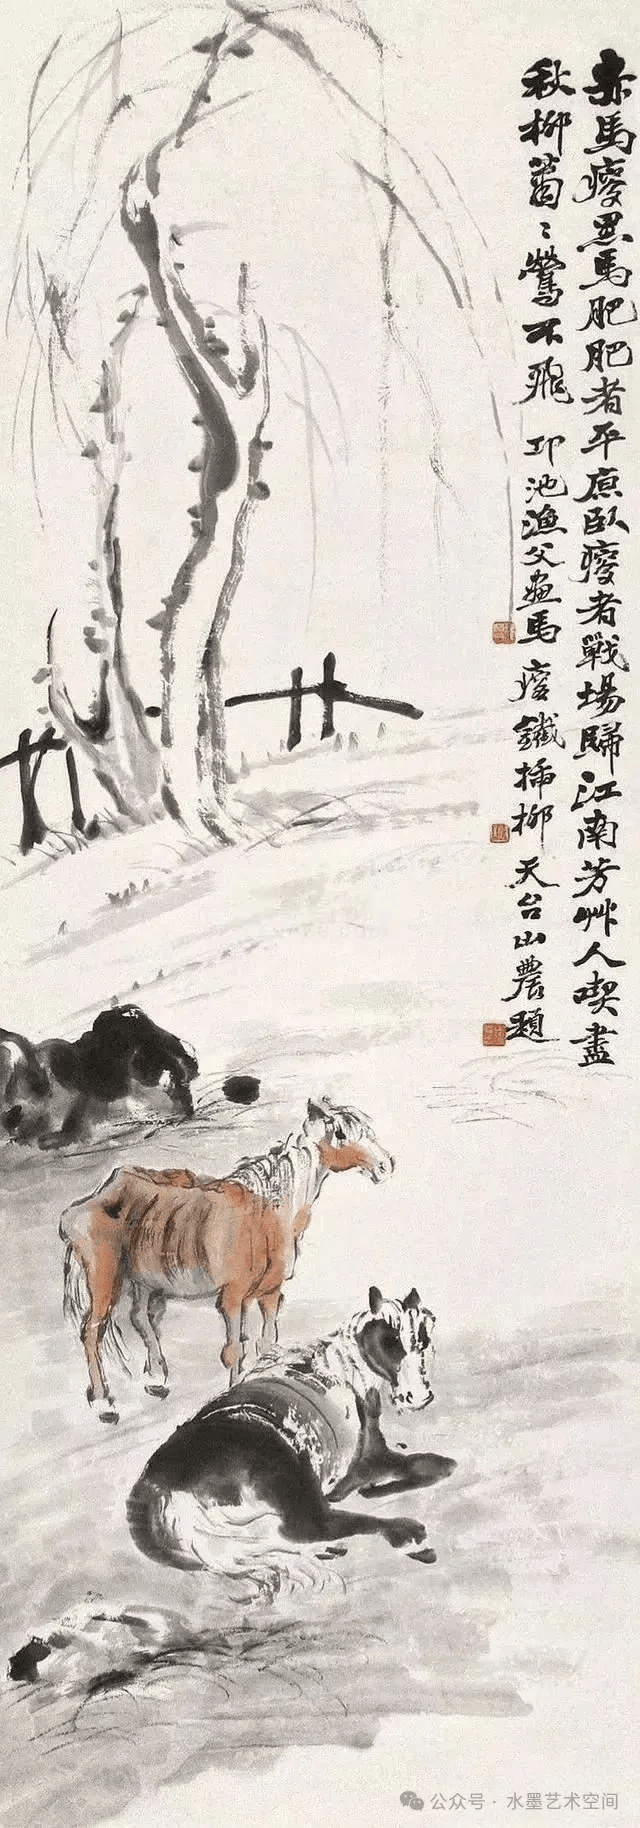 赤馬瘦黑馬肥肥者平原臥瘦者戰場歸江南芳艸人喫盡
秋柳蕭〻鶯不飛 邛池漁父畫馬 瘦鐵插柳 天台山農題
公众号 · 水墨艺术空间